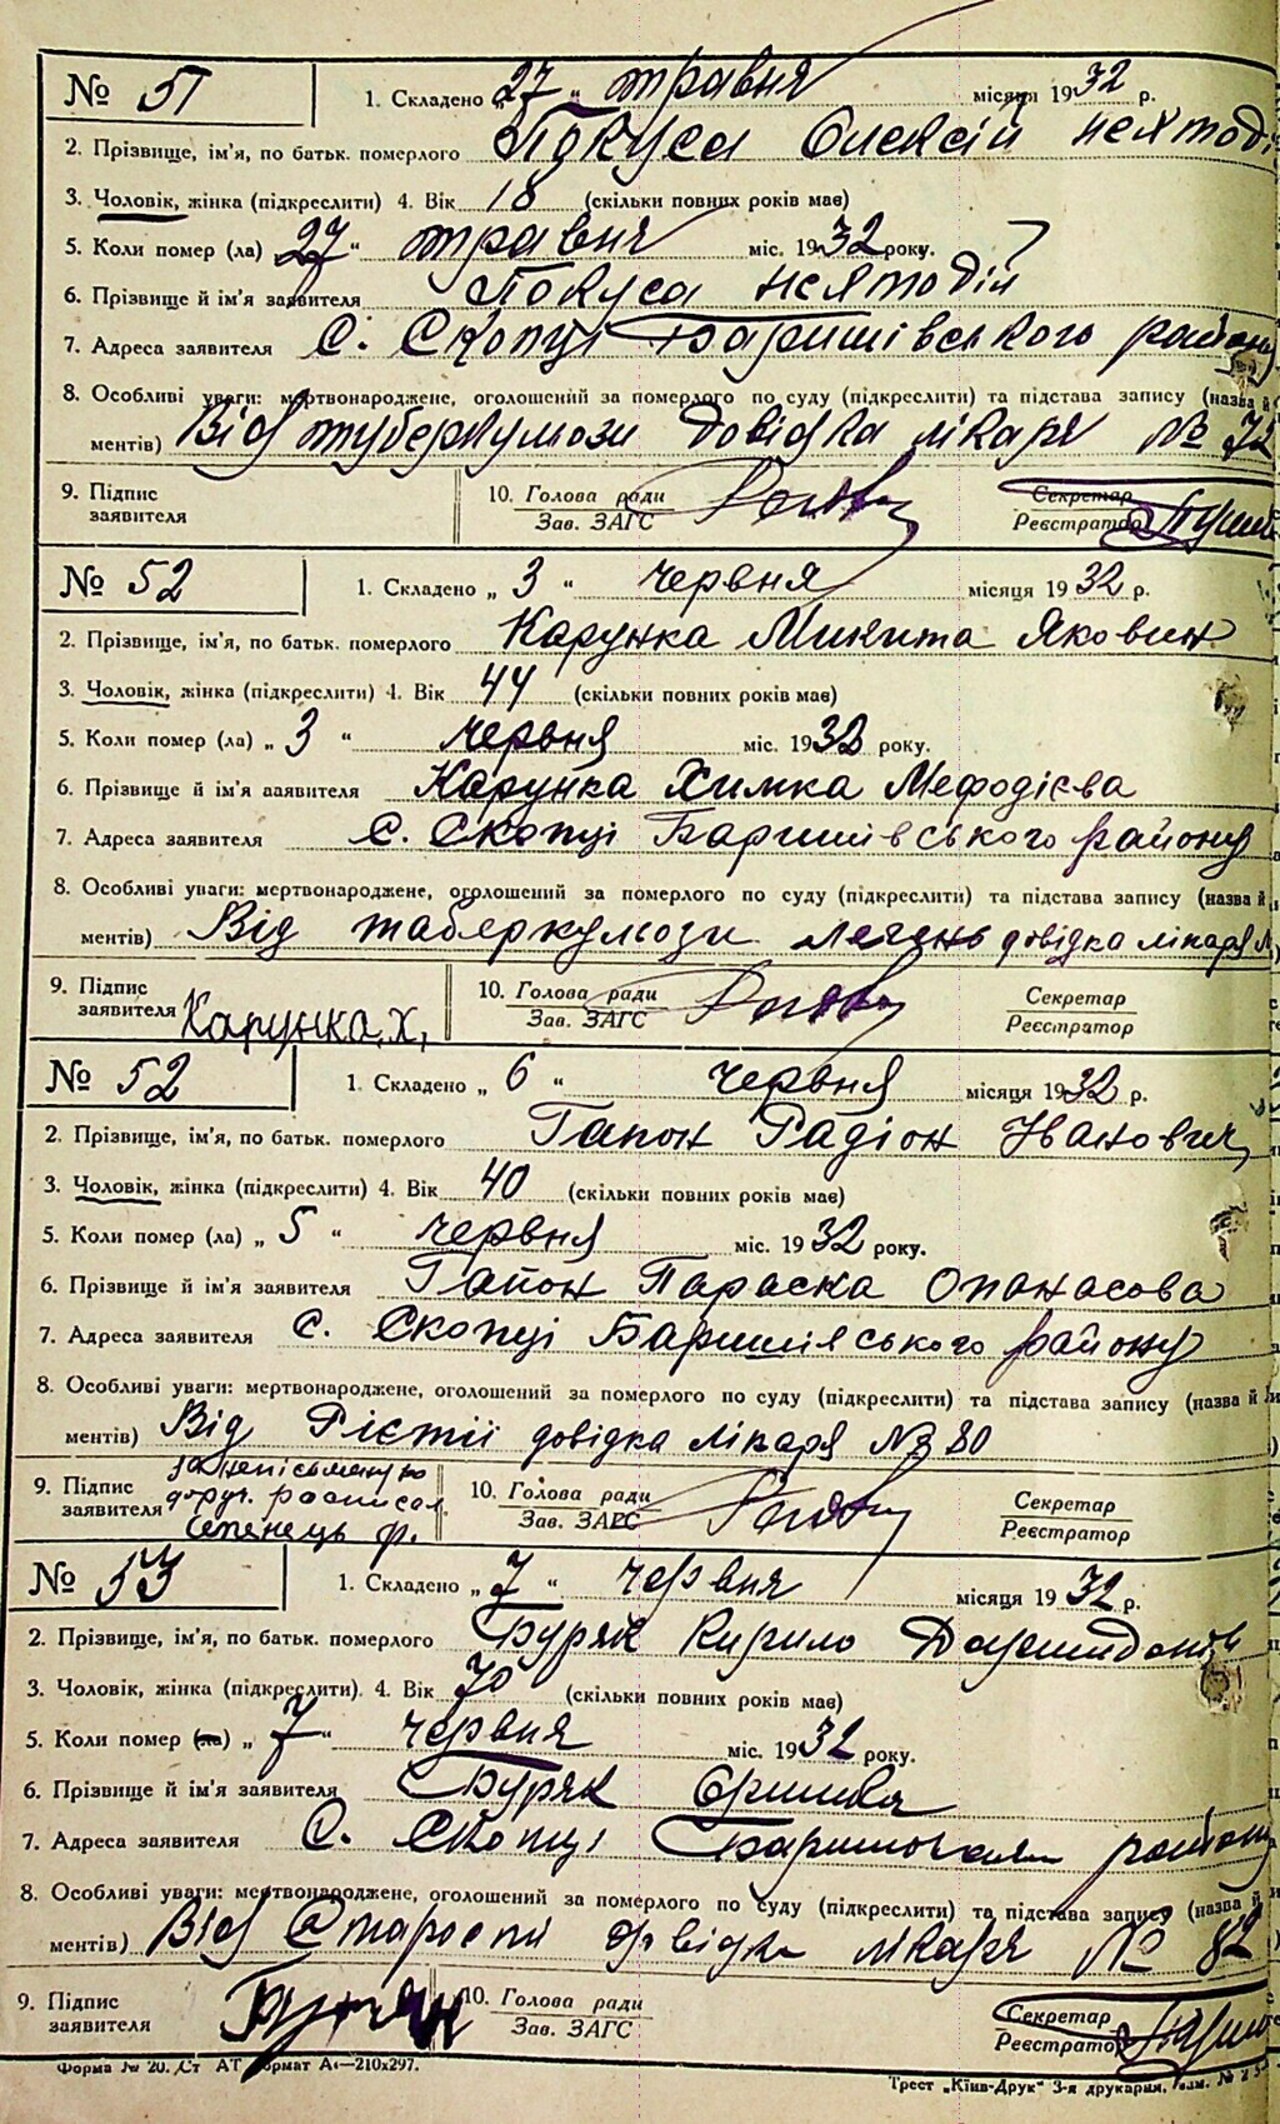 № 51 1. Складено „27“ травня місяця 1932 р.
2. Прізвище, ім'я, по батьк. померлого Покуса Олексій
3. Чоловік, жінка (підкреслити) 4. Вік 18 (скільки повних років має)
5. Коли помер (ла) 27“ травня міс. 1932 року.
6. Прізвище й ім'я заявителя Покуса
7. Адреса заявителя С. Скопці Баришівського району
8. Особливі уваги: мертвонароджене, оголошений за померлого по суду (підкреслити) та підстава запису (назва й
ментів) Від туберкульози довідка лікаря № 72
9. Підпис заявителя 10. Голова ради Зав. ЗАГС Секретар Реєстратор
№ 52 1. Складено „3“ червня місяця 1932 р.
2. Прізвище, ім'я, по батьк. померлого Карунка Микита Якович
3. Чоловік, жінка (підкреслити) 4. Вік 44 (скільки повних років має)
5. Коли помер (ла) „3“ червня міс. 1932 року.
6. Прізвище й ім'я заявителя Карунка Химка Мефодієва
7. Адреса заявителя С. Скопці Баришівського району
8. Особливі уваги: мертвонароджене, оголошений за померлого по суду (підкреслити) та підстава запису (назва й
ментів) Від таберкульози легень довідка лікаря №
9. Підпис заявителя Карунка Х, 10. Голова ради Зав. ЗАГС Секретар Реєстратор
№ 52 1. Складено „6“ червня місяця 1932 р.
2. Прізвище, ім'я, по батьк. померлого Гапон Радіон Іванович
3. Чоловік, жінка (підкреслити) 4. Вік 40 (скільки повних років має)
5. Коли помер (ла) „5“ червня міс. 1932 року.
6. Прізвище й ім'я заявителя Гапон Параска Опанасова
7. Адреса заявителя С. Скопці Баришівського району
8. Особливі уваги: мертвонароджене, оголошений за померлого по суду (підкреслити) та підстава запису (назва й
ментів) Від довідка лікаря № 80
9. Підпис заявителя за неписьменную доруч. росписал 10. Голова ради Зав. ЗАГС Секретар Реєстратор
№ 53 1. Складено „7“ червня місяця 1932 р.
2. Прізвище, ім'я, по батьк. померлого Буряк Кирило
3. Чоловік, жінка (підкреслити). 4. Вік 70 (скільки повних років має)
5. Коли помер (ла) „7“ червня міс. 1932 року.
6. Прізвище й ім'я заявителя Буряк
7. Адреса заявителя С. Скопці району
8. Особливі уваги: мертвонароджене, оголошений за померлого по суду (підкреслити) та підстава запису (назва й
ментів) Від Старости довідка лікаря № 82
9. Підпис заявителя 10. Голова ради Зав. ЗАГС Секретар Реєстратор
Форма № 20. Ст АТ формат А4—210х297.
Трест „Київ-Друк“ 3-я друкарня.